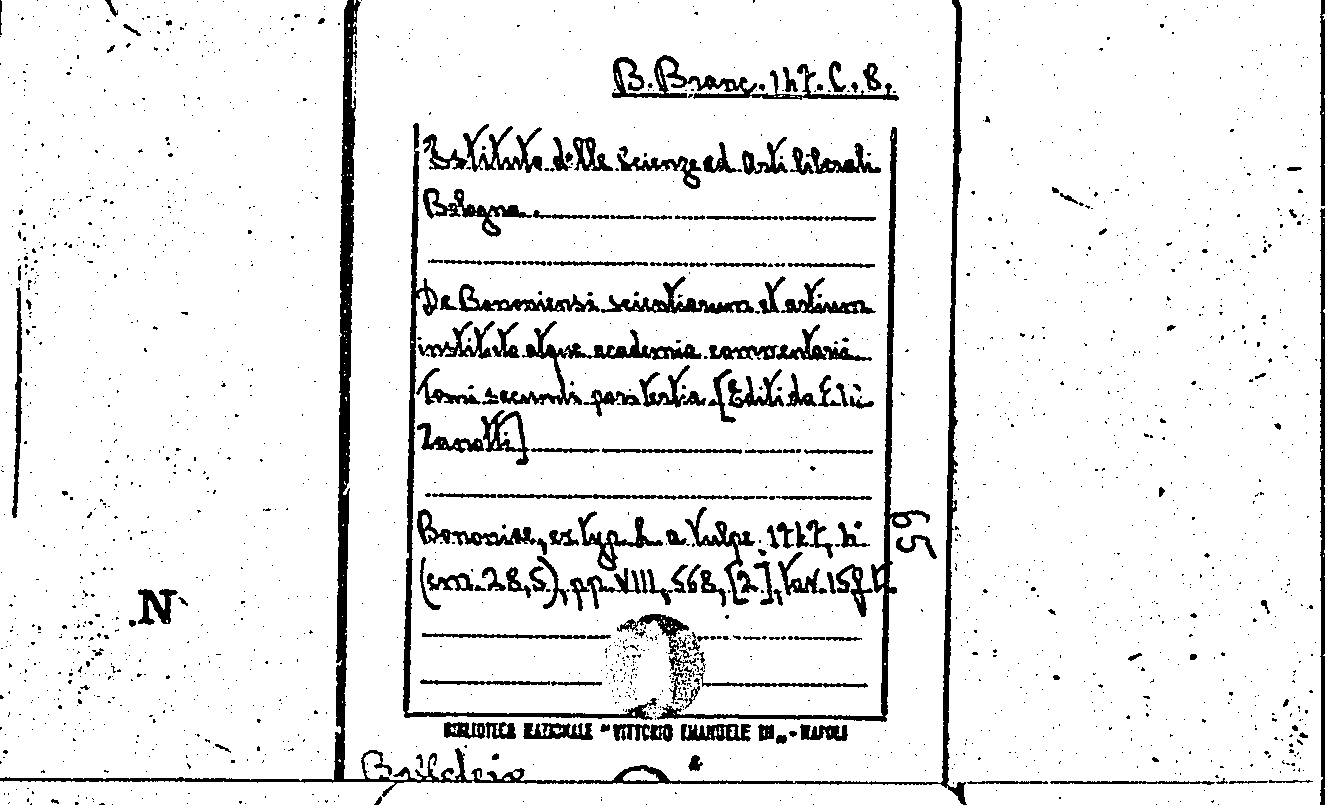 B. Branc. 147. C. 8.
Istituto delle Scienze ed Arti liberali
Bologna.
De Bononiensi scientiarum et artium
instituto atque academia commentarii.
Tomi secundi pars tertia. [Editi da
Zanotti]
Bononiae, ex typ. L. a Vulpe. 1747, 4°
(cm. 28,5), pp. VIII, 568, [2], tav. 15 f. t.
65
BIBLIOTECA NAZIONALE "VITTORIO EMANUELE III„ - NAPOLI
.N